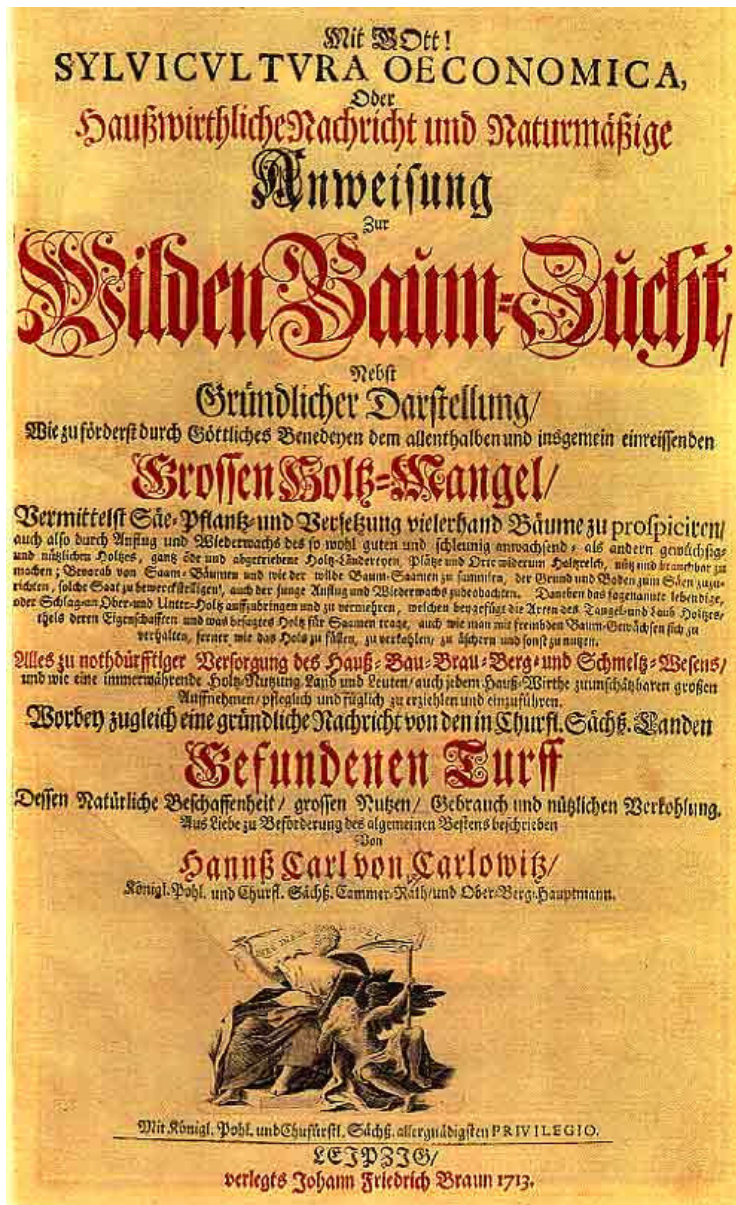 Mit GOtt!
SYLVICVLTVRA OECONOMICA,
Oder
Haußwirthliche Nachricht und Naturmäßige
Anweisung
Zur
Wilden Baum-Zucht,
Nebst
Gründlicher Darstellung/
Wie zu förderst durch Göttliches Benedeyen dem allenthalben und insgemein einreissenden
Grossen Holtz-Mangel/
Vermittelst Säe-Pflantz-und Versetzung vielerhand Bäume zu prospiciren/
auch also durch Anflug und Wiederwachs des so wohl guten und schleunig anwachsend- als andern gewüchsig-
und nützlichen Holtzes, gantz öde und abgetriebene Holtz-Ländereyen, Plätze und Orte widerum Holtzreich, nütz und brauchbar zu
machen; Bevorab von Saam-Bäumen und wie der wilde Baum-Saamen zu sammlen, der Grund und Boden zum Säen zuzu-
richten, solche Saat zu bewerckstelligen, auch der junge Anflug und Wiederwachs zu beobachten. Daneben das sogenannte lebendige,
oder Schlag-an Ober-und Unter-Holtz auffzubringen und zu vermehren, welchen beygefügt die Arten des Tangel-und Laub Holtzes,
theils deren Eigenschafften und was besagtes Holtz für Saamen trage, auch wie man mit frembden Baum-Gewächsen sich zu
verhalten, ferner wie das Holz zu fällen, zu verkohlen, zu äschern und sonst zu nutzen.
Alles zu nothdürfftiger Versorgung des Hauß-Bau-Brau-Berg-und Schmeltz-Wesens/
und wie eine immerwährende Holtz-Nutzung Land und Leuten/ auch jedem Hauß-Wirthe zu unschätzbaren großen
Auffnehmen/ pfleglich und füglich zu erziehlen und einzuführen.
Worbey zugleich eine gründliche Nachricht von den in Churfl. Sächß. Landen
Gefundenen Turff
Dessen Natürliche Beschaffenheit/ grossen Nutzen/ Gebrauch und nützlichen Verkohlung.
Aus Liebe zu Beförderung des algemeinen Bestens beschrieben
Von
Hannß Carl von Carlowitz/
Königl. Pohl. und Churfl. Sächß. Cammer-Rath/ und Ober-Berg-Hauptmann.
Mit Königl. Pohl. und Chufürstl. Sächß. allergnädigsten PRIVILEGIO.
LEJPZJG/
verlegts Johann Friedrich Braun 1713.